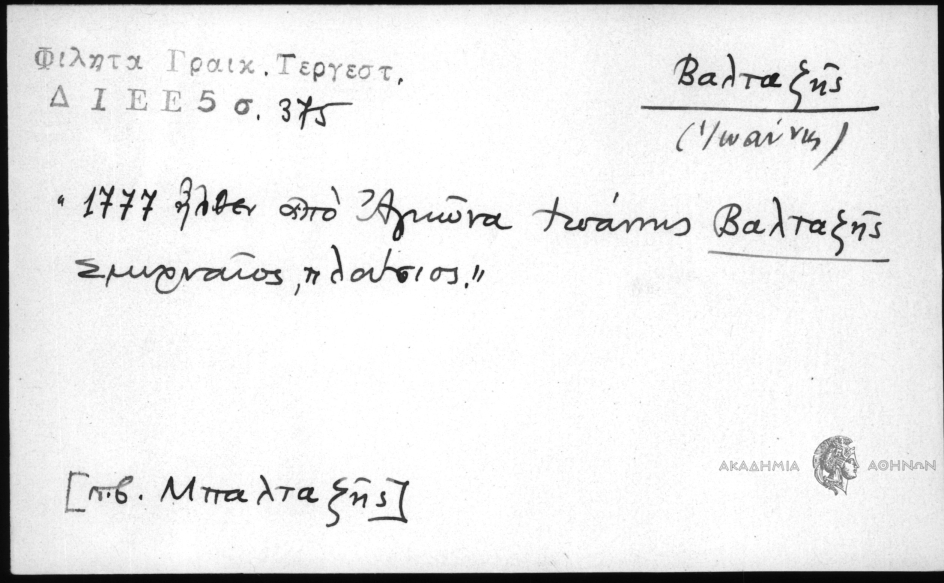 Φιλητα Γραικ. Τεργεστ.
Δ Ι Ε Ε 5 σ. 375
Βαλταζῆς
(Ἰωάννης)
"1777 ἦλθεν ἀπὸ Ἀγκῶνα Ἰωάννης Βαλταζῆς
Σμυρναῖος, πλούσιος."
[π.β. Μπαλταζῆς]
ΑΚΑΔΗΜΙΑ ΑΘΗΝΩΝ